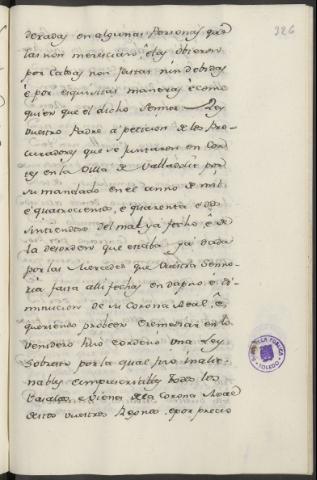 326
deradas en algunas Personas que
las non merescian, é las obieron
por cabsas non justas nin debidas
é por exquisitas maneras, é como
quier que el dicho Señor Rey
vuestro Padre á peticion de los Pro-
curadores que se juntaron en Cor-
tes en la Villa de Valladolid por
su mandado en el anno de mil
é quatrocientos, é quarenta é dos
sintiendose del mal ya fecho, é de
la desorden que estaba ya dada
por las Mercedes que Vuestra Senno-
ria fasta alli fechas en dapno, é di-
minucion de su Corona Real, é
queriendo proveer é remediar en lo
venidero fizo é ordenó una Ley
sobresto por la qual fizo inalie-
nables é imprescritibles todos los
Vasallos, é Vienes de la Corona Real
destos vuestros Regnos, é por precio
TOLEDO